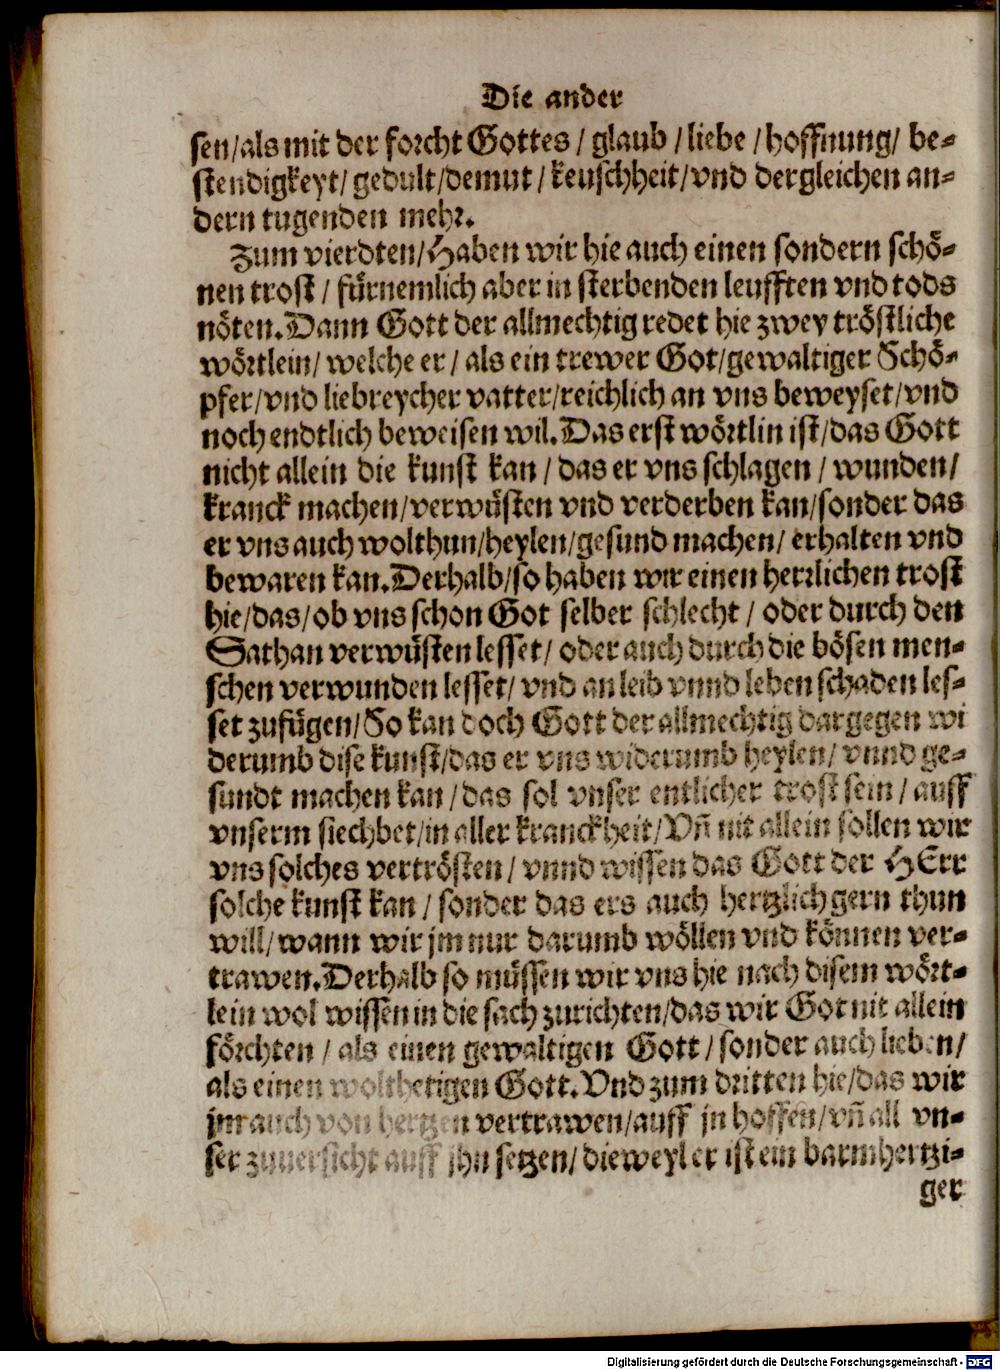 Die ander
sen/als mit der forcht Gottes / glaub / liebe / hoffnung/ be-
stendigkeyt/ gedult/demut / keuschheit/vnd dergleichen an-
dern tugenden mehr.
Zum vierdten/Haben wir hie auch einen sondern schö-
nen trost / fürnemlich aber in sterbenden leufften vnd tods
nöten.Dann Gott der allmechtig redet hie zwey tröstliche
wörtlein/ welche er / als ein trewer Got/gewaltiger Schö-
pfer/vnd liebreycher vatter/reichlich an vns beweyset/vnd
noch endtlich beweisen wil.Das erst wörtlin ist/das Gott
nicht allein die kunst kan / das er vns schlagen / wunden/
kranck machen/verwüsten vnd verderben kan/sonder das
er vns auch wolthun/heylen/gesund machen/ erhalten vnd
bewaren kan.Derhalb/so haben wir einen herrlichen trost
hie/das/ob vns schon Got selber schlecht / oder durch den
Sathan verwüsten lesset/ oder auch durch die bösen men-
schen verwunden lesset/ vnd an leib vnnd leben schaden les-
set zufügen/So kan doch Gott der allmechtig dargegen wi
derumb dise kunst/das er vns widerumb heylen/ vnnd ge-
sundt machen kan / das sol vnser entlicher trost sein / auff
vnserm siechbet/in aller kranckheit/Vñ nit allein sollen wir
vns solches vertrösten / vnnd wissen das Gott der HErr
solche kunst kan / sonder das ers auch hertzlich gern thun
will/wann wir jm nur darumb wöllen vnd können ver-
trawen.Derhalb so müssen wir vns hie nach disem wört-
lein wol wissen in die sach zurichten/das wir Got nit allein
förchten / als einen gewaltigen Gott / sonder auch lieben/
als einen wolthetigen Gott. Vnd zum dritten hie/das wir
jm auch von hertzen vertrawen/auff jn hoffen/vñ all vn-
ser zuuersicht auff jhn setzen/ dieweyl er ist ein barmhertzi-
ger
Digitalisierung gefördert durch die Deutsche Forschungsgemeinschaft - DFG